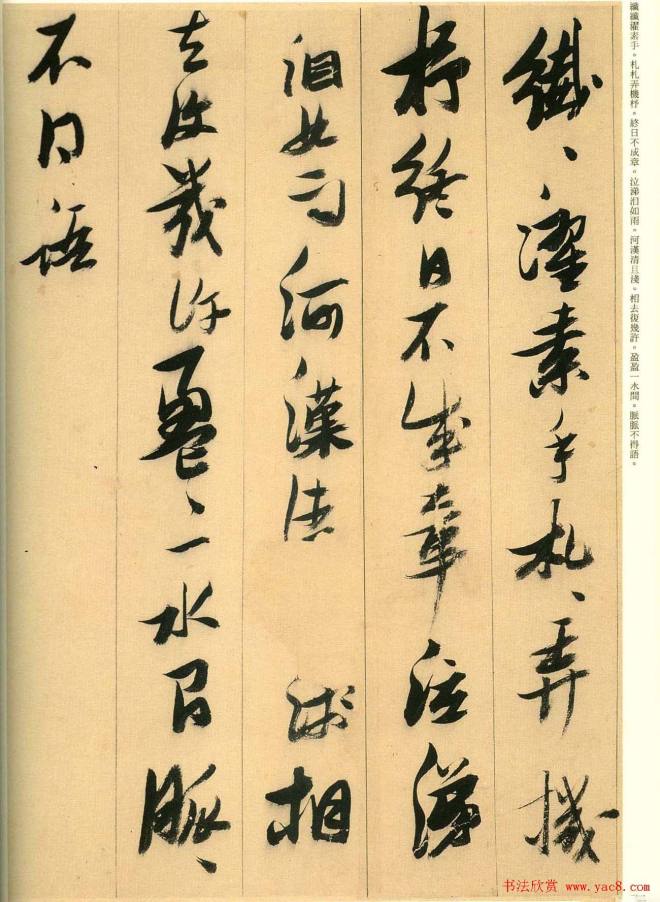 纖纖濯素手。札札弄機杼。終日不成章。泣涕泪如雨。河漢清且淺。相去復幾許。盈盈一水間。脈脈不得語。
纖〻濯素手札〻弄機
杼終日不成章泣涕
泪如雨河漢清 淺相
去復幾許盈〻一水間脈〻
不得語
书法欣赏 www.yac8.com